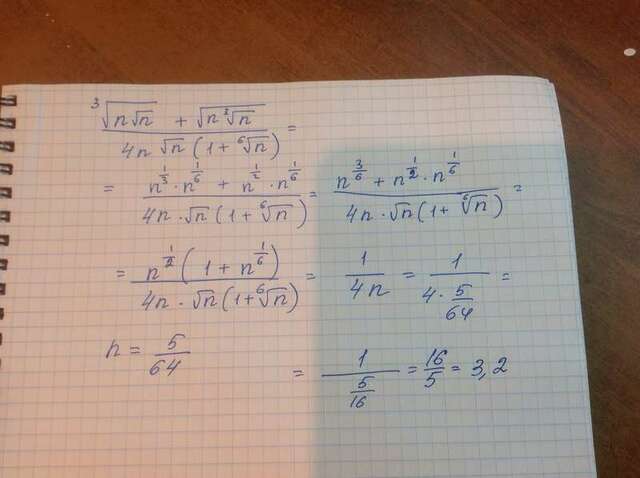 ∛(n√n) + √(n ∛n) / 4n √n (1 + ⁶√n) =
= n^(1/3) · n^(1/6) + n^(1/2) · n^(1/6) / 4n · √n (1 + ⁶√n) = n^(3/6) + n^(1/2) · n^(1/6) / 4n · √n (1 + ⁶√n) =
= n^(1/2) (1 + n^(1/6)) / 4n · √n (1 + ⁶√n) = 1 / 4n = 1 / (4 · 5/64) =
n = 5/64
= 1 / (5/16) = 16/5 = 3,2